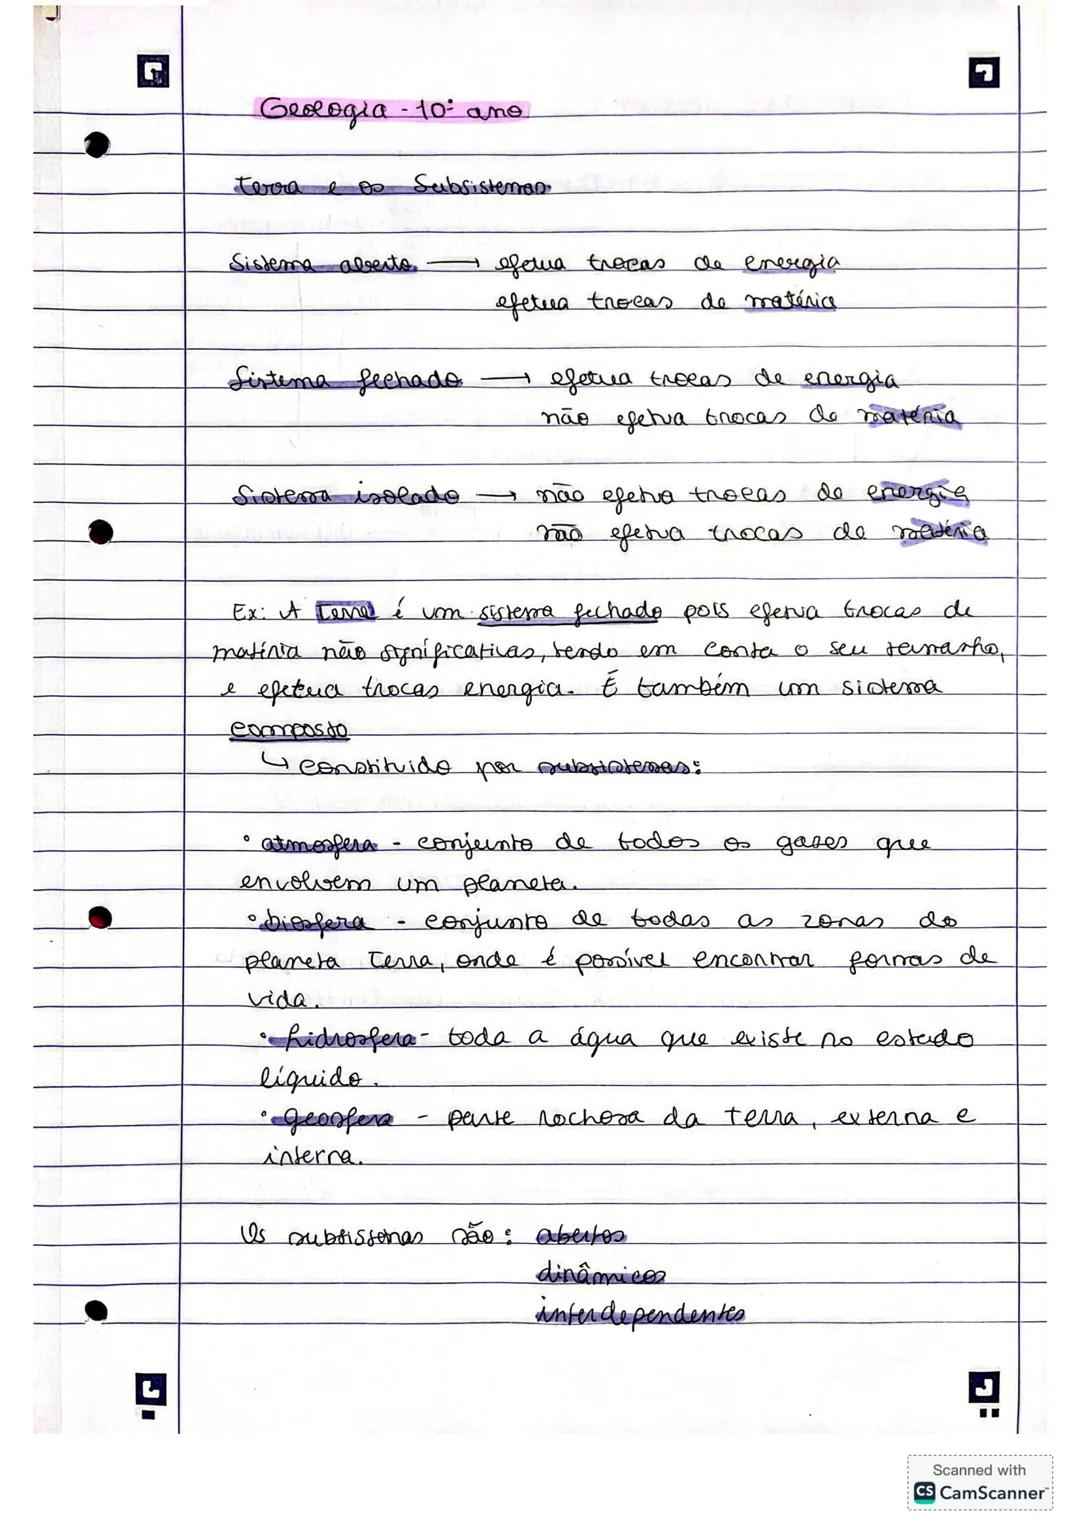 Geologia - 10º ano
Terra e os Subsistemas
Sistema aberto → efetua trocas de energia
efetua trocas de matéria
Sistema fechado → efetua trocas de energia
não efetua trocas de matéria
Sistema isolado → não efetua trocas de energia
não efetua trocas de matéria
Ex: A Terra é um sistema fechado pois efetua trocas de
matéria não significativas, tendo em conta o seu tamanho,
e efetua trocas energia. É também um sistema
composto
↳ constituído por subsistemas:
• atmosfera - conjunto de todos os gases que
envolvem um planeta.
• biosfera - conjunto de todas as zonas do
planeta Terra, onde é possível encontrar formas de
vida.
• hidrosfera - toda a água que existe no estado
líquido.
• geosfera - parte rochosa da terra, externa e
interna.
Os subsistemas são: abertos
dinâmicos
interdependentes
Scanned with
CS CamScanner